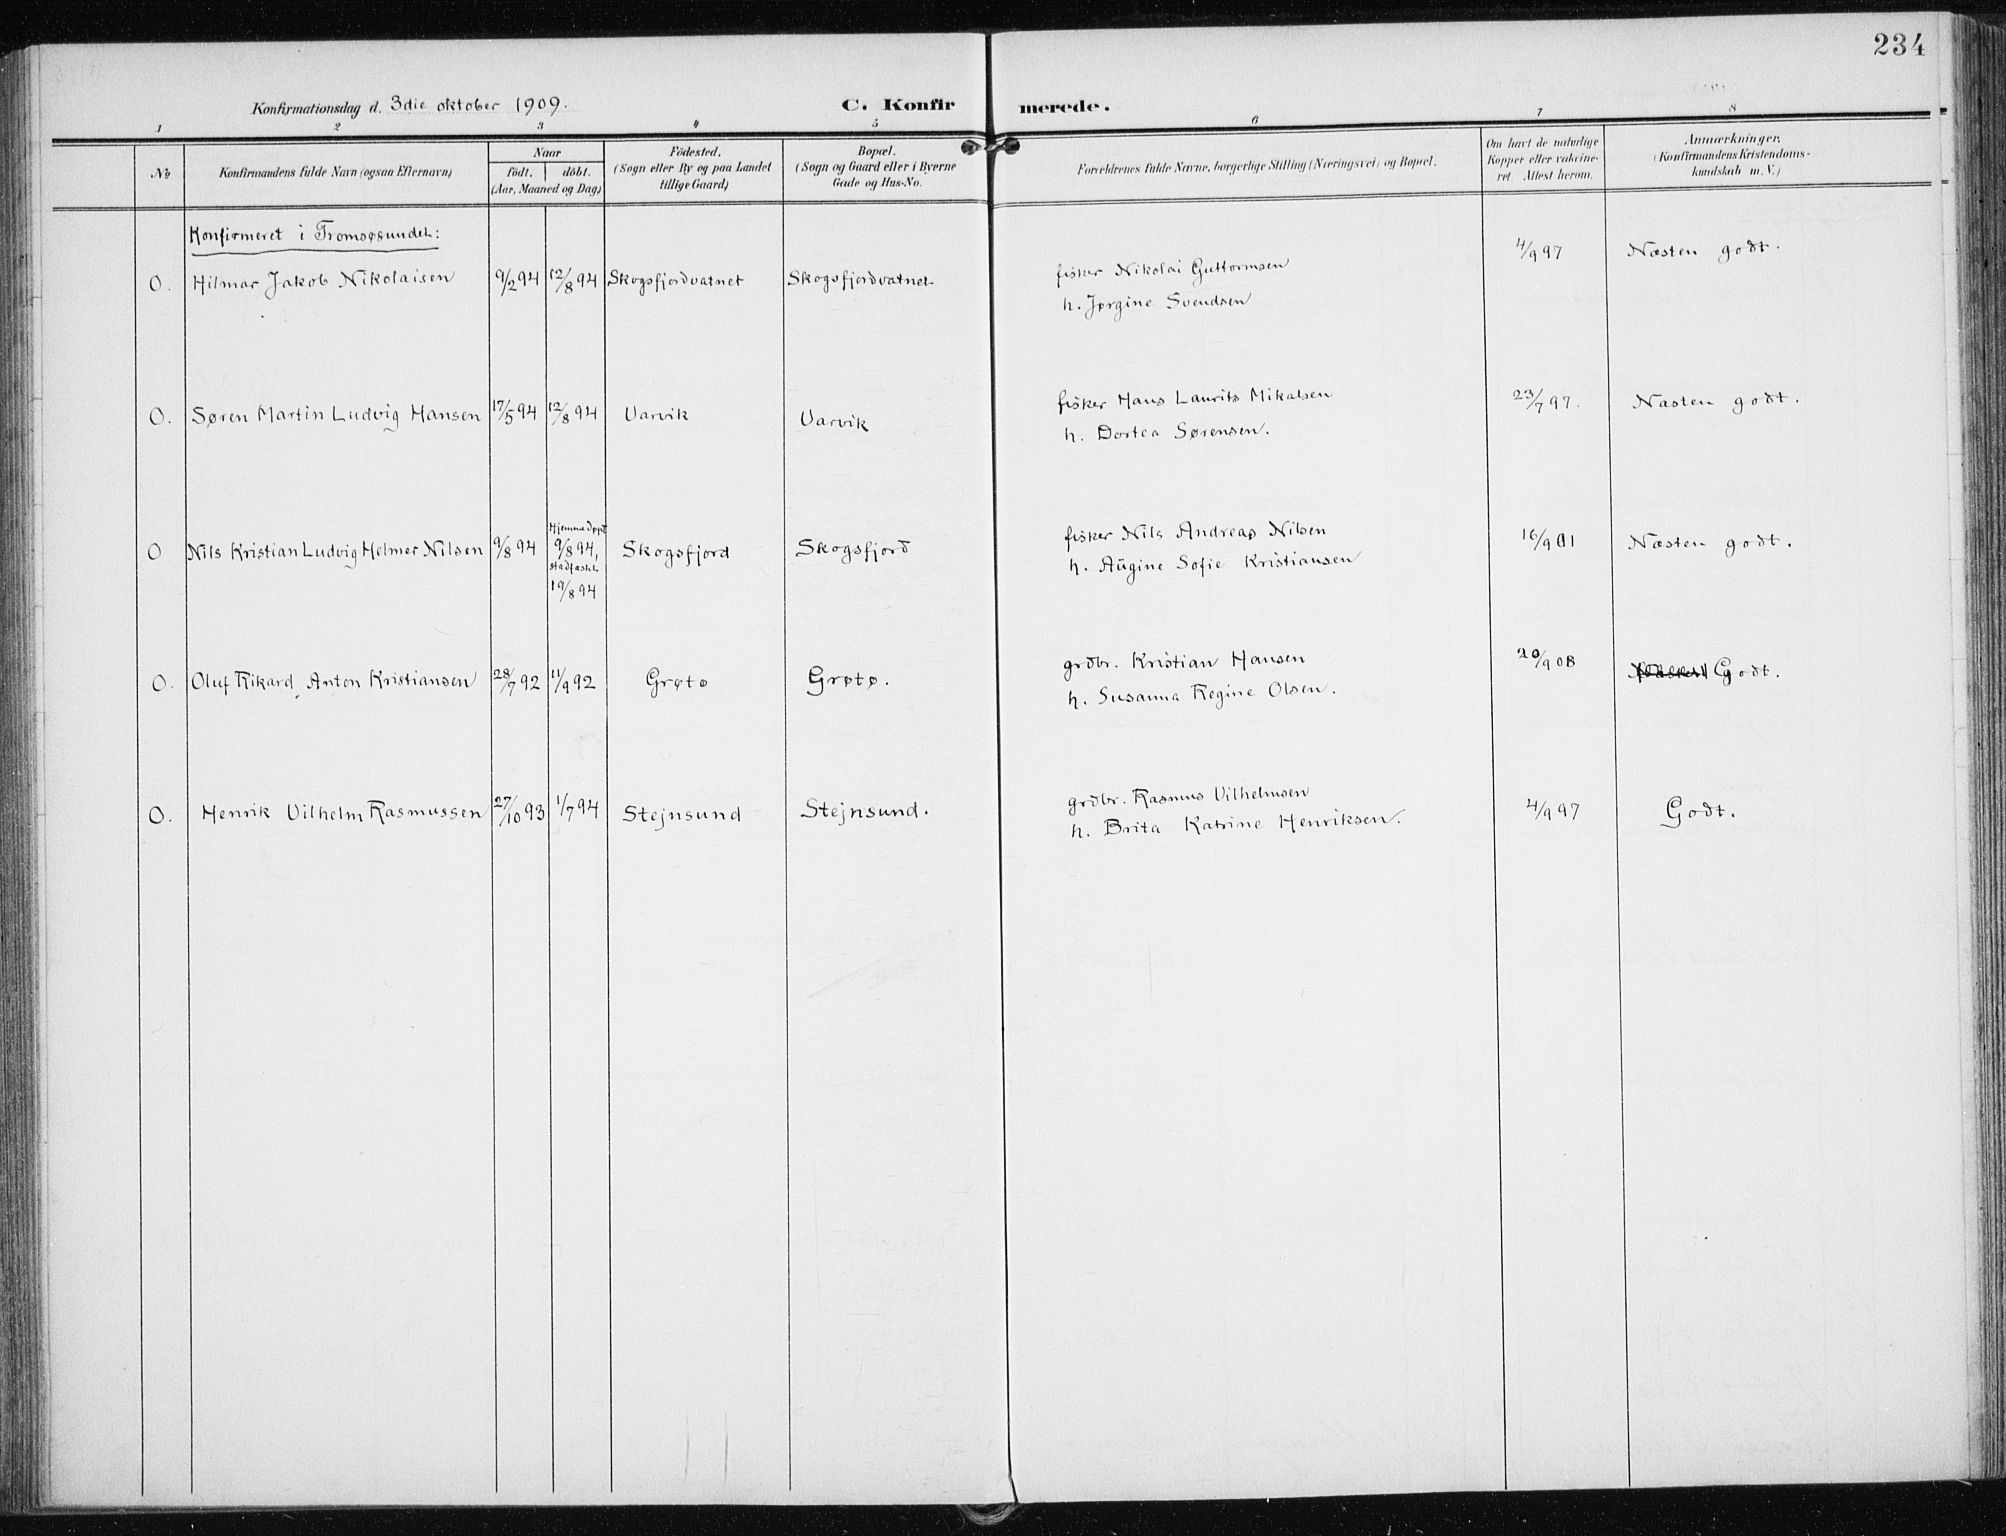 234
Konfirmationsdag d. 3die oktober 1909.
C. Konfirmerede.
1 2 3 4 5 6 7 8
No
Konfirmandens fulde Navn (ogsaa Efternavn)
Naar
födt. döbt.
(Aar, Maaned og Dag)
Födested.
(Sogn eller By og paa Landet
tillige Gaard)
Bopæl.
(Sogn og Gaard eller i Byerne
Gade og Hus-No.
Forældrenes fulde Navne, borgerlige Stilling (Næringsvei) og Bopæl.
Om havt de naturlige
Kopper eller vakcine-
ret Attest herom.
Anmærkninger.
(Konfirmandens Kristendoms-
kundskab m. V.)
Konfirmeret i Tromsøsundet:
O. Hilmar Jakob Nikolaisen 9/2 94 12/8 94 Skogsfjordvatnet Skogsfjordvatnet fisker Nikolai Guttormsen 4/9 97 Næsten godt.
h. Jørgine Svendsen
O. Søren Martin Ludvig Hansen 17/5 94 12/8 94 Varvik Varvik fisker Hans Laurits Mikalsen 23/7 97. Næsten godt.
h. Dortea Sørensen.
O Nils Kristian Ludvig Helmer Nilsen 9/8 94 Hjemmedøpt 9/8 94, stadfæstet 19/8 94 Skogsfjord Skogsfjord fisker Nils Andreas Nilsen 16/9 01 Næsten godt.
h. Aŭgine Sofie Kristiansen
O. Oluf Rikard Anton Kristiansen 28/7 92 11/9 92 Grøtø Grøtø. grdbr. Kristian Hansen 20/9 08 Godt.
h. Susanna Regine Olsen.
O. Henrik Vilhelm Rasmussen 27/10 93 1/7 94 Stejnsund Stejnsund. grdbr. Rasmus Vilhelmsen 4/9 97 Godt.
h. Brita Katrine Henriksen.